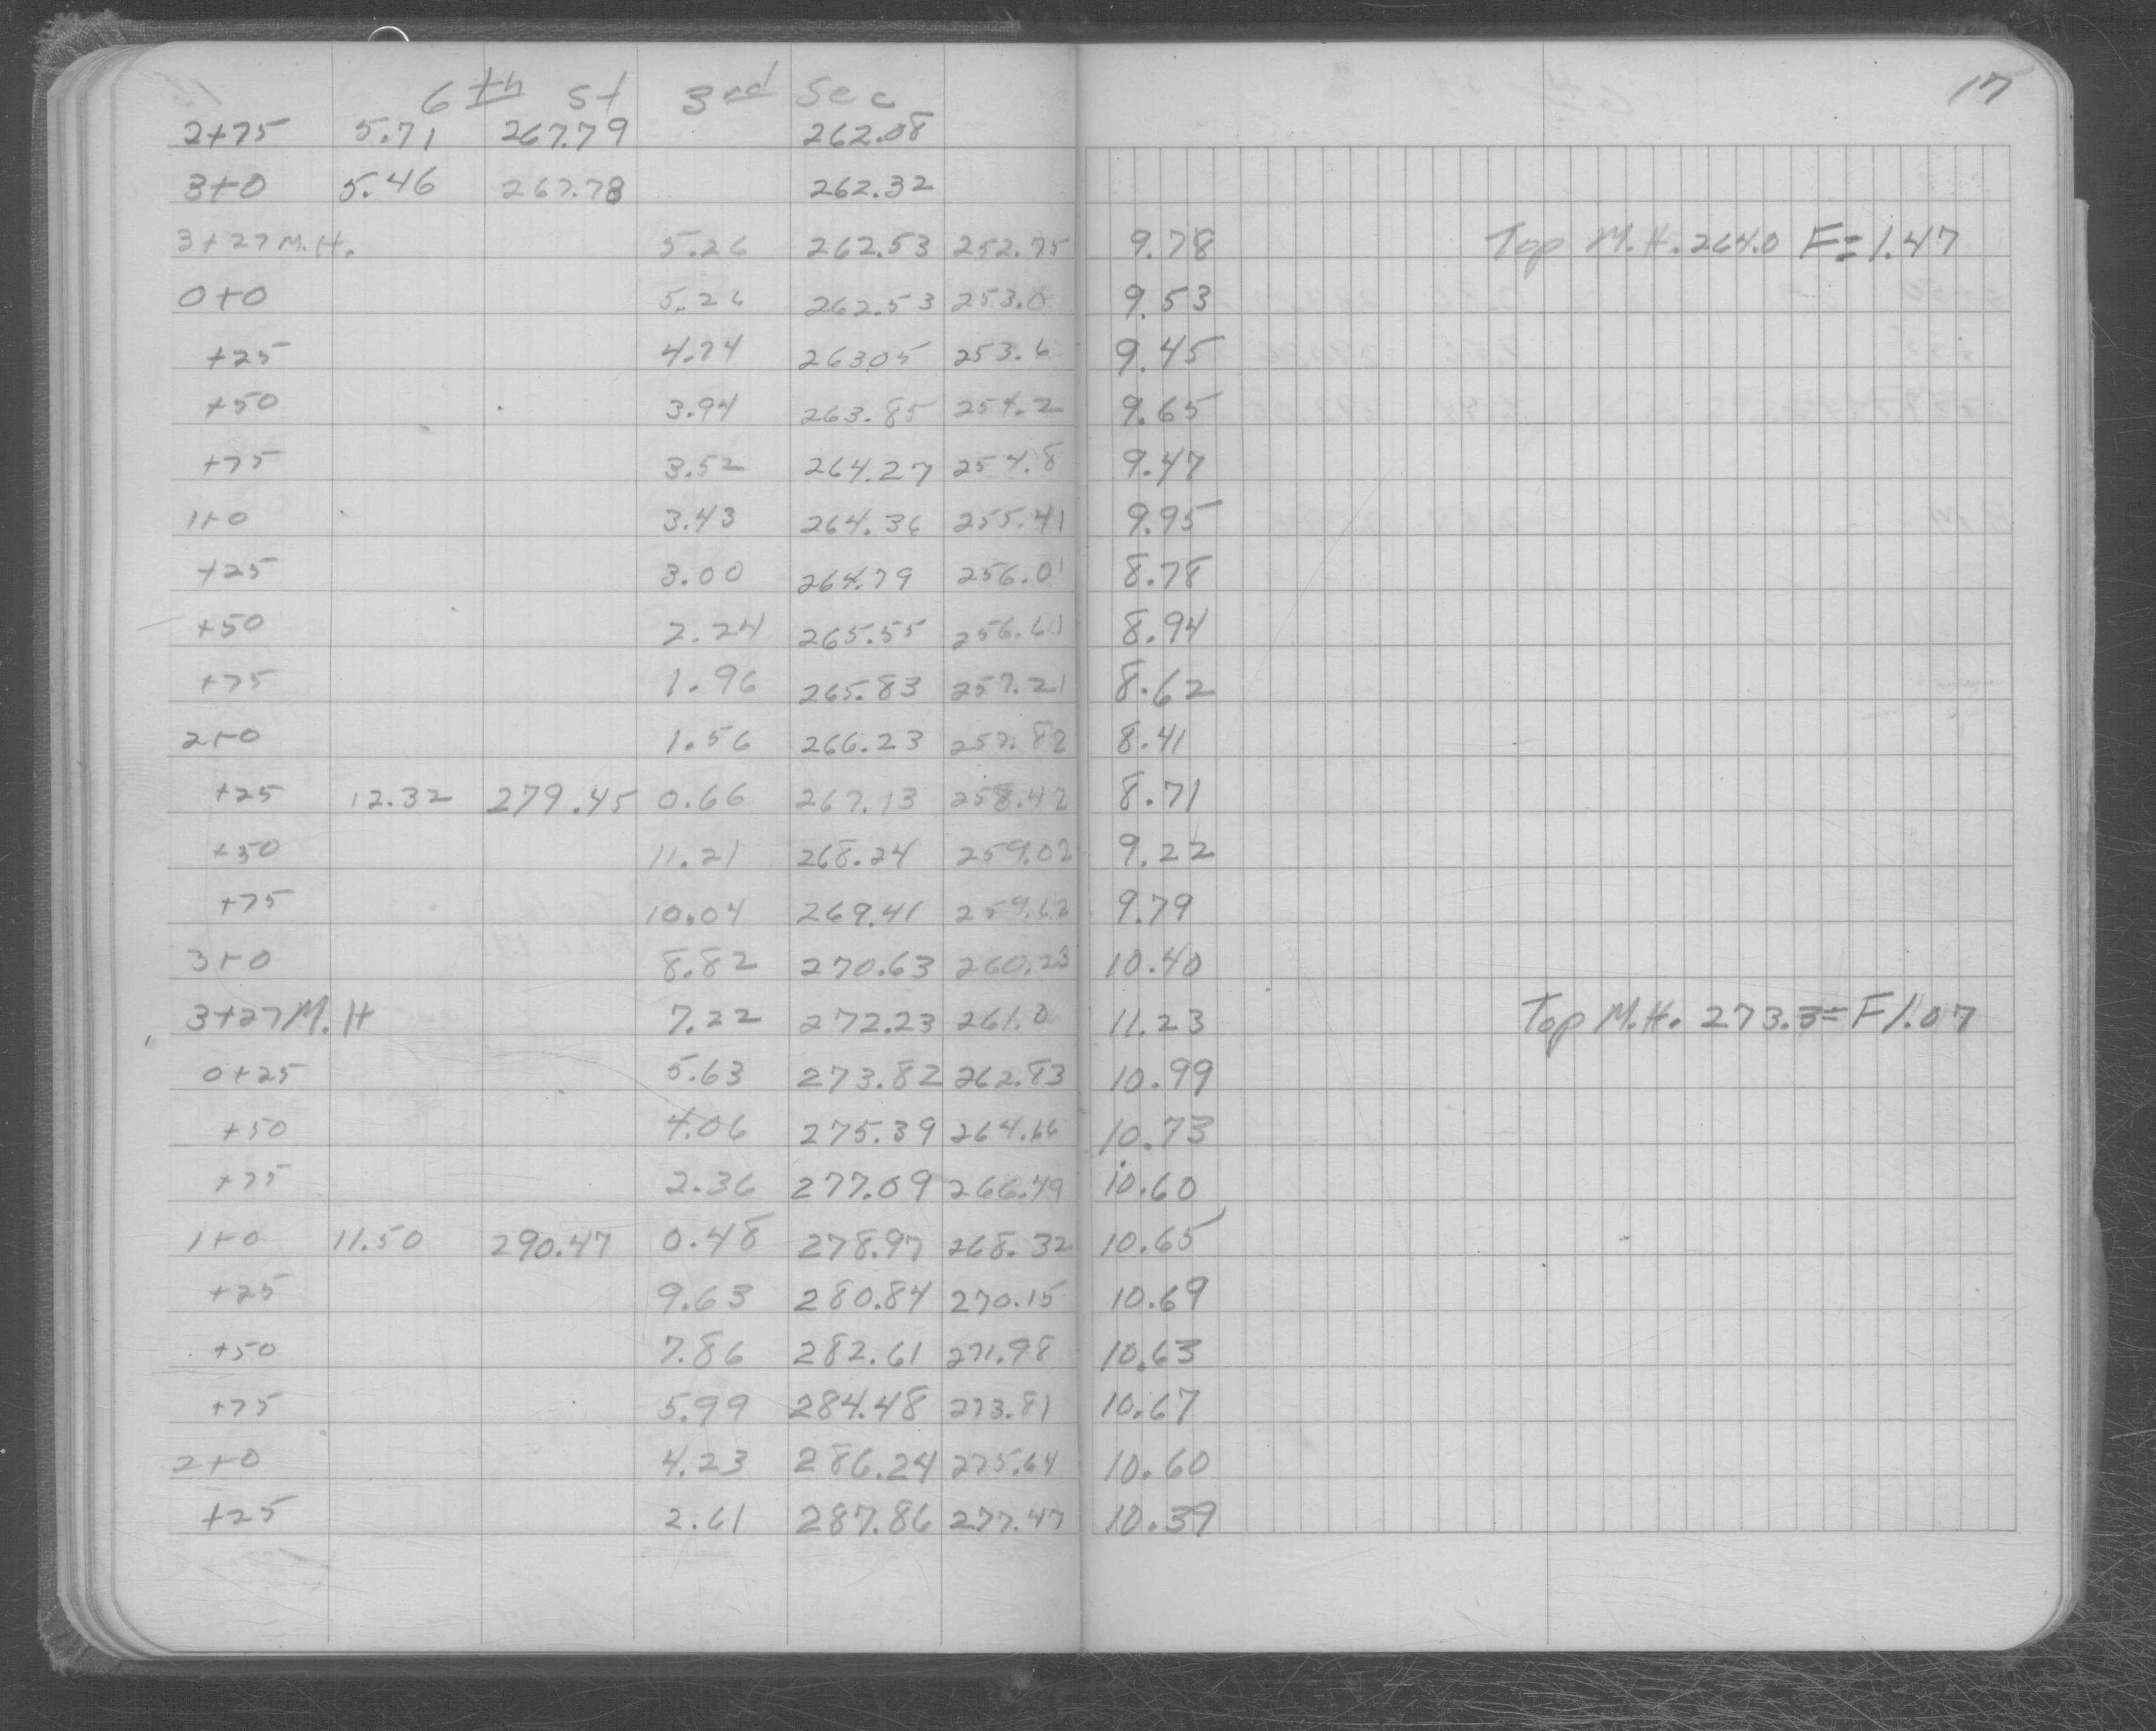 17
6th St 3rd Sec
2+75 5.71 267.79 262.08
3+0 5.46 267.78 262.32
3+27 M.H. 5.26 262.53 252.75 9.78 Top M.H. 264.0 F=1.47
0+0 5.26 262.53 253.0 9.53
+25 4.74 26305 253.6 9.45
+50 3.94 263.85 254.2 9.65
+75 3.52 264.27 254.8 9.47
1+0 3.43 264.36 255.41 9.95
+25 3.00 264.79 256.01 8.78
+50 2.24 265.55 256.61 8.94
+75 1.96 265.83 257.21 8.62
2+0 1.56 266.23 257.82 8.41
+25 12.32 279.45 0.66 267.13 258.42 8.71
+50 11.21 268.24 259.02 9.22
+75 10.04 269.41 259.62 9.79
3+0 8.82 270.63 260.23 10.40
3+27 M.H 7.22 272.23 261.0 11.23 Top M.H. 273.3=F1.07
0+25 5.63 273.82 262.83 10.99
+50 4.06 275.39 264.66 10.73
+75 2.36 277.09 266.49 10.60
1+0 11.50 290.47 0.48 278.97 268.32 10.65
+25 9.63 280.84 270.15 10.69
+50 7.86 282.61 271.98 10.63
+75 5.99 284.48 273.81 10.67
2+0 4.23 286.24 275.64 10.60
+25 2.61 287.86 277.47 10.39